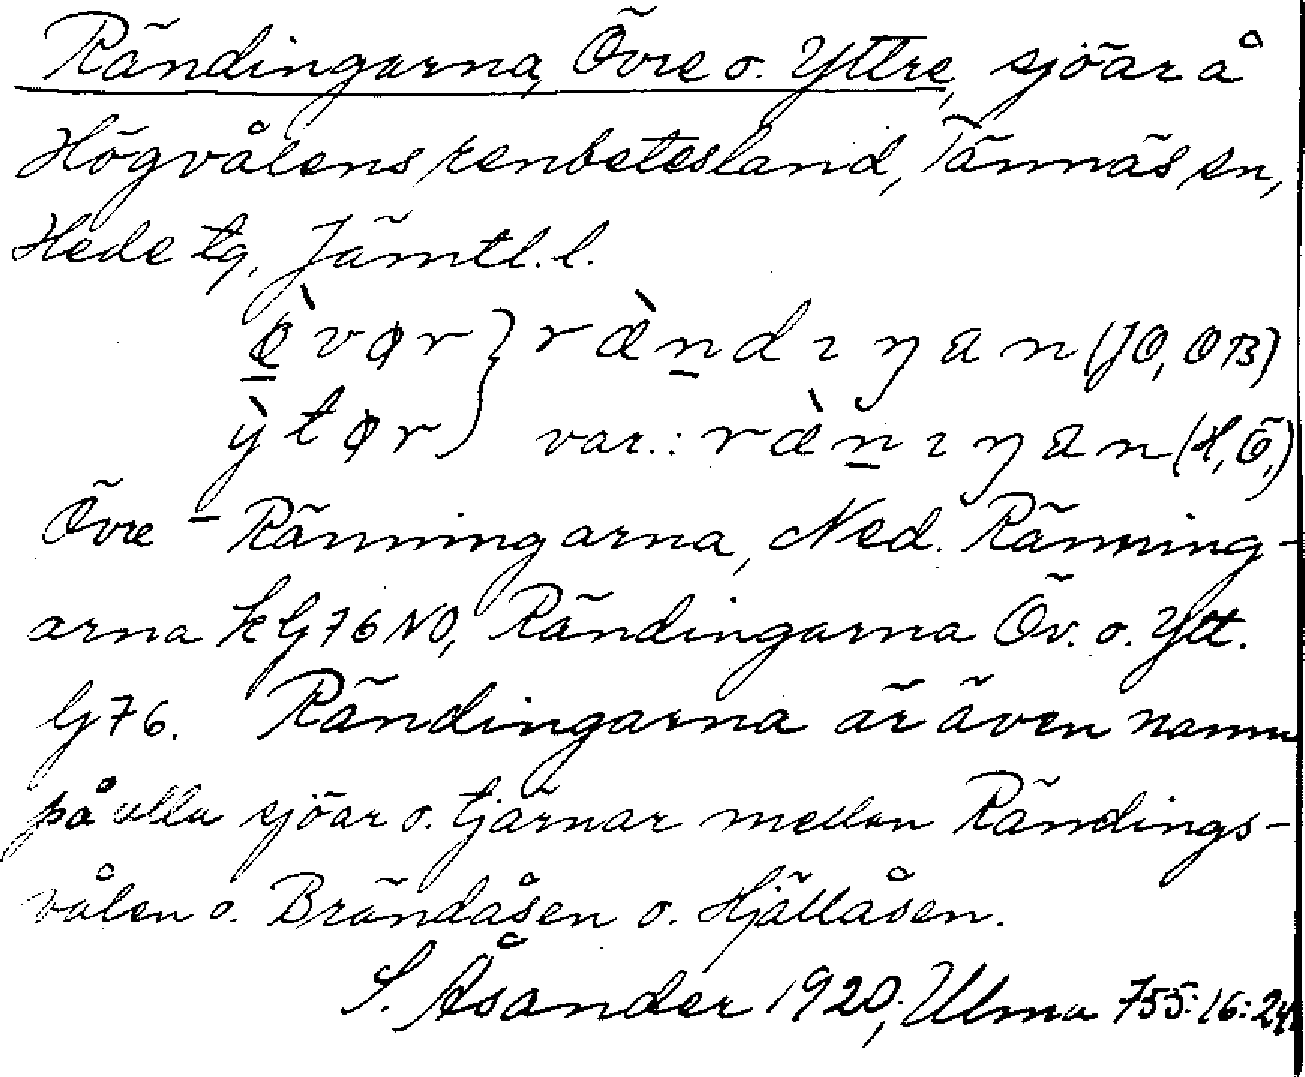 Rändingarna, Övre o. Yttre, sjöar å
Högvålens renbetesland, Tännäs sn,
Hede tg, Jämtl. l.
ø̀vər } ræ̀ndɪŋan (JO, OB)
ỳtər } var.: ræ̀nɪŋan (H, Ö,)
Övre - Ränningarna, Ned. Ränning-
arna k G 76 NO, Rändingarna Öv. o. Ytt.
G 76. Rändingarna är även namn
på alla sjöar o. tjärnar mellan Rändings-
vålen o. Brändåsen o. Hjällåsen.
S. Åsander 1920; Ulma 755:16:24